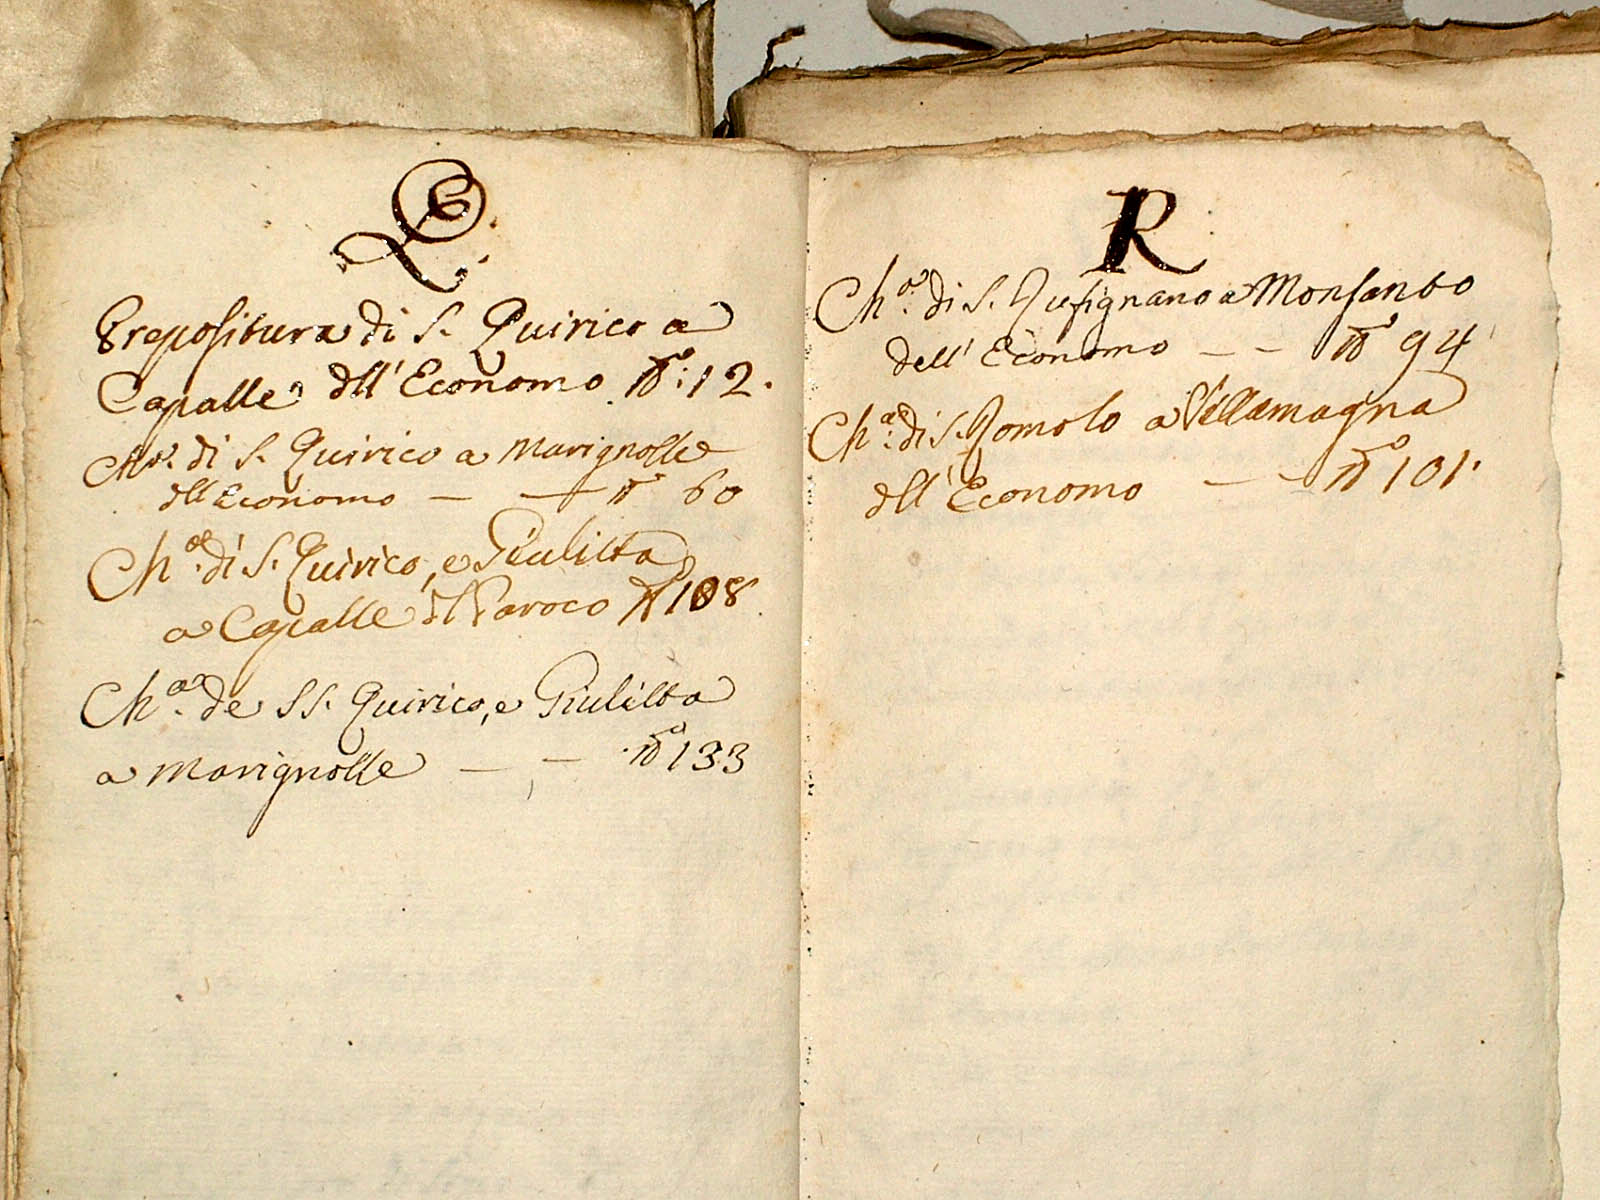 Q
Prepositura di S. Quirico a
Capalle dell' Economo N.º: 12.
Chª. di S. Quirico a Marignolle
dell Economo — — Nº 60
Chª. di S. Quirico, e Giulitta
a Capalle del Paroco Nº 108
Chª. de SS. Quirico, e Giulitta
a Marignolle — — Nº 133
R
Chª. di S. Rufignano a Monsanto
dell' Economo — — Nº 94
Chª. di S. Romolo a Villamagna
dell' Economo — — Nº 101.